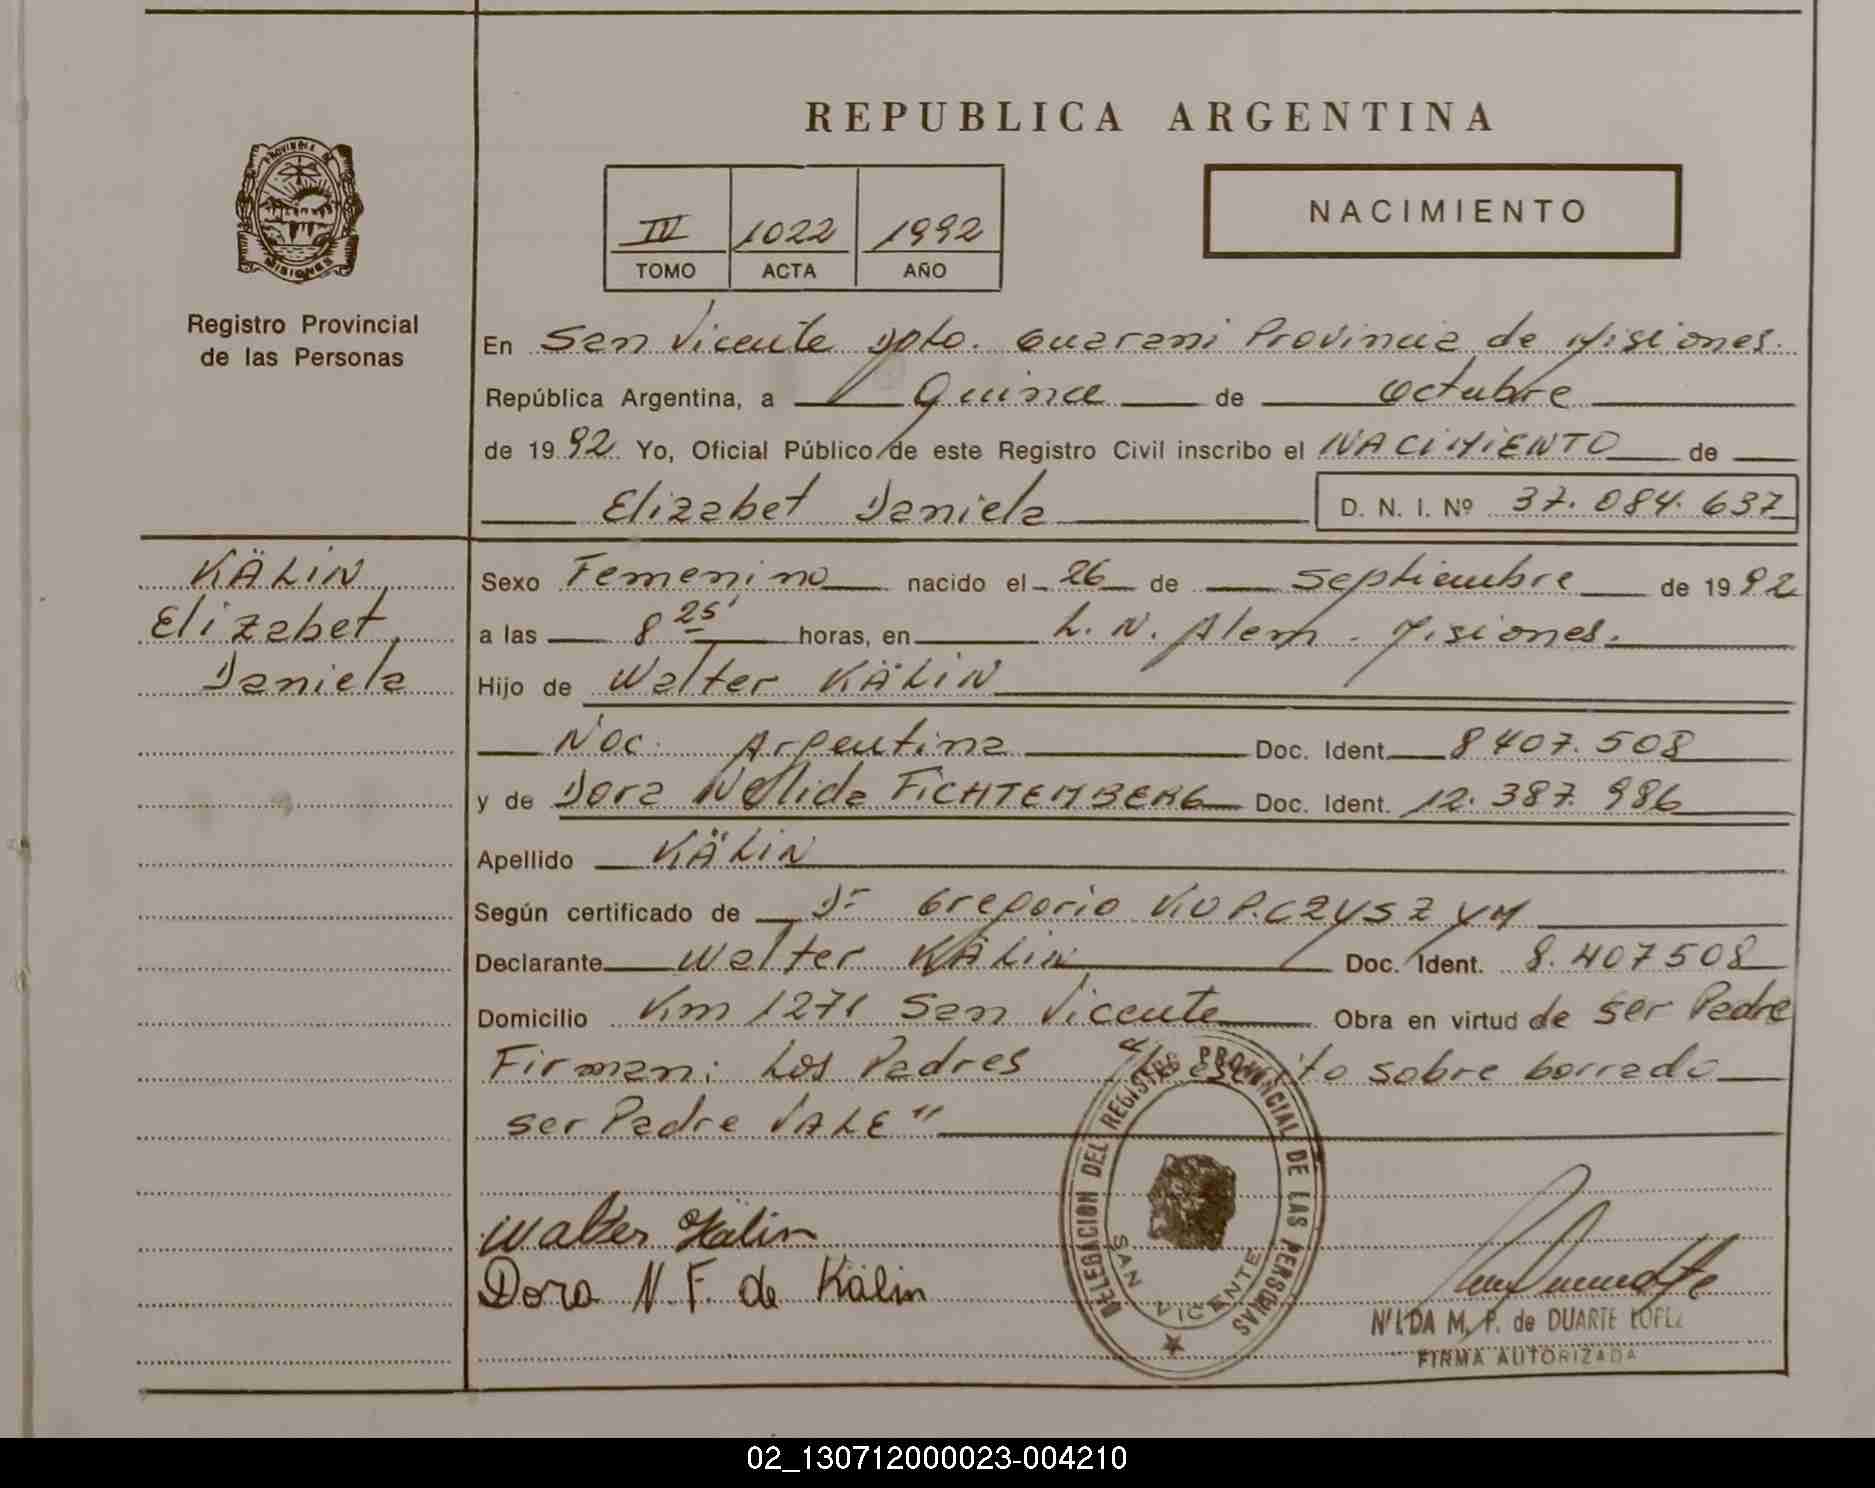 REPUBLICA ARGENTINA
PROVINCIA DE
MISIONES
Registro Provincial
de las Personas
IV 1022 1992
TOMO ACTA AÑO
NACIMIENTO
En San Vicente Dpto. Guarani Provincia de Misiones.
República Argentina, a Quince de Octubre
de 1992 Yo, Oficial Público de este Registro Civil inscribo el NACIMIENTO de
Elizabet Daniela D. N. I. Nº 37.084.637
KÄLIN
Elizabet
Daniela
Sexo Femenino nacido el 26 de Septiembre de 1992
a las 8 25' horas, en L. N. Alem - Misiones.
Hijo de Walter KÄLIN
Nac. Argentina Doc. Ident. 8407.508
y de Dora Nélida FICHTEMBERG Doc. Ident. 12.387.986
Apellido KÄLIN
Según certificado de Dr Gregorio KOPCZYSZYM
Declarante Walter KÄLIN Doc. Ident. 8.407508
Domicilio Km 1271 San Vicente Obra en virtud de ser Padre
Firman: Los Padres sobre borrado
ser Padre VALE"
Walter Kälin
Dora N. F. de Kälin
DELEGACION DEL REGISTRO PROVINCIAL DE LAS PERSONAS
SAN VICENTE
NILDA M. P. de DUARTE LOPEZ
FIRMA AUTORIZADA
02_130712000023-004210